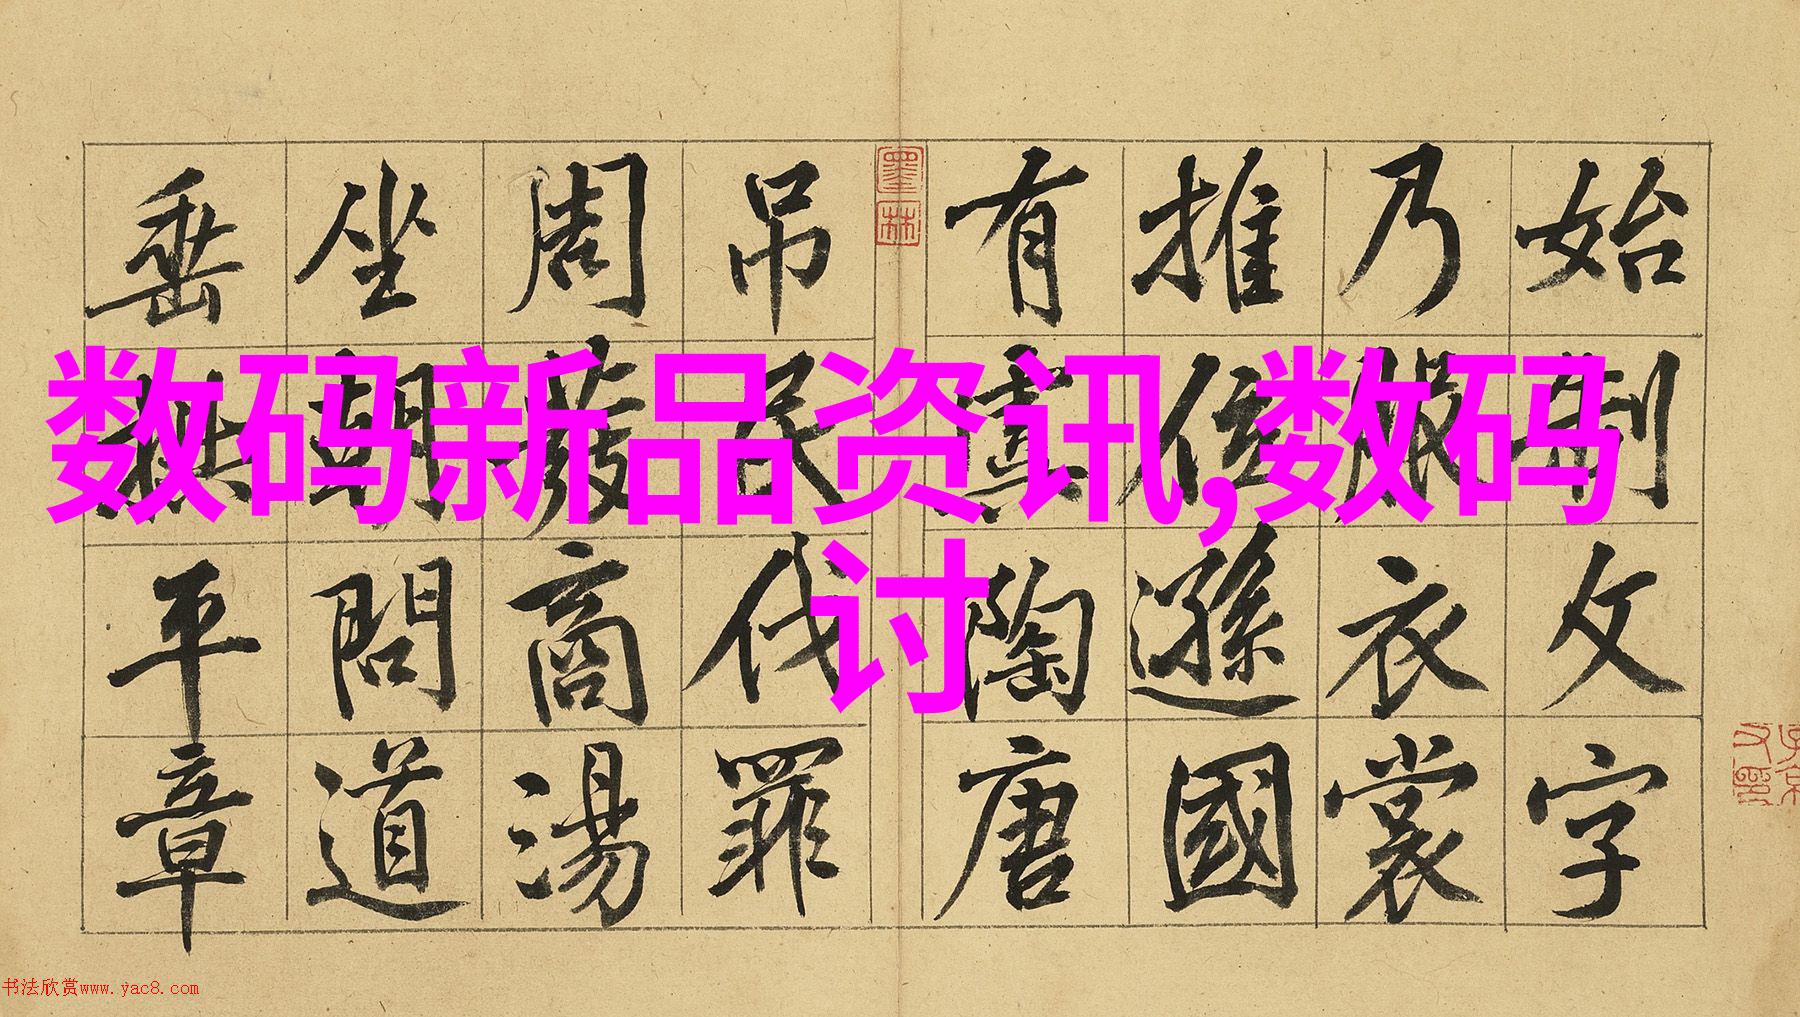 始制文字
乃服衣裳
推位遜國
有虞陶唐
墨林
吊民伐罪
周發商湯
坐朝問道
垂拱平章
数码新品资讯,数码
讨
书法欣赏www.yac8.com